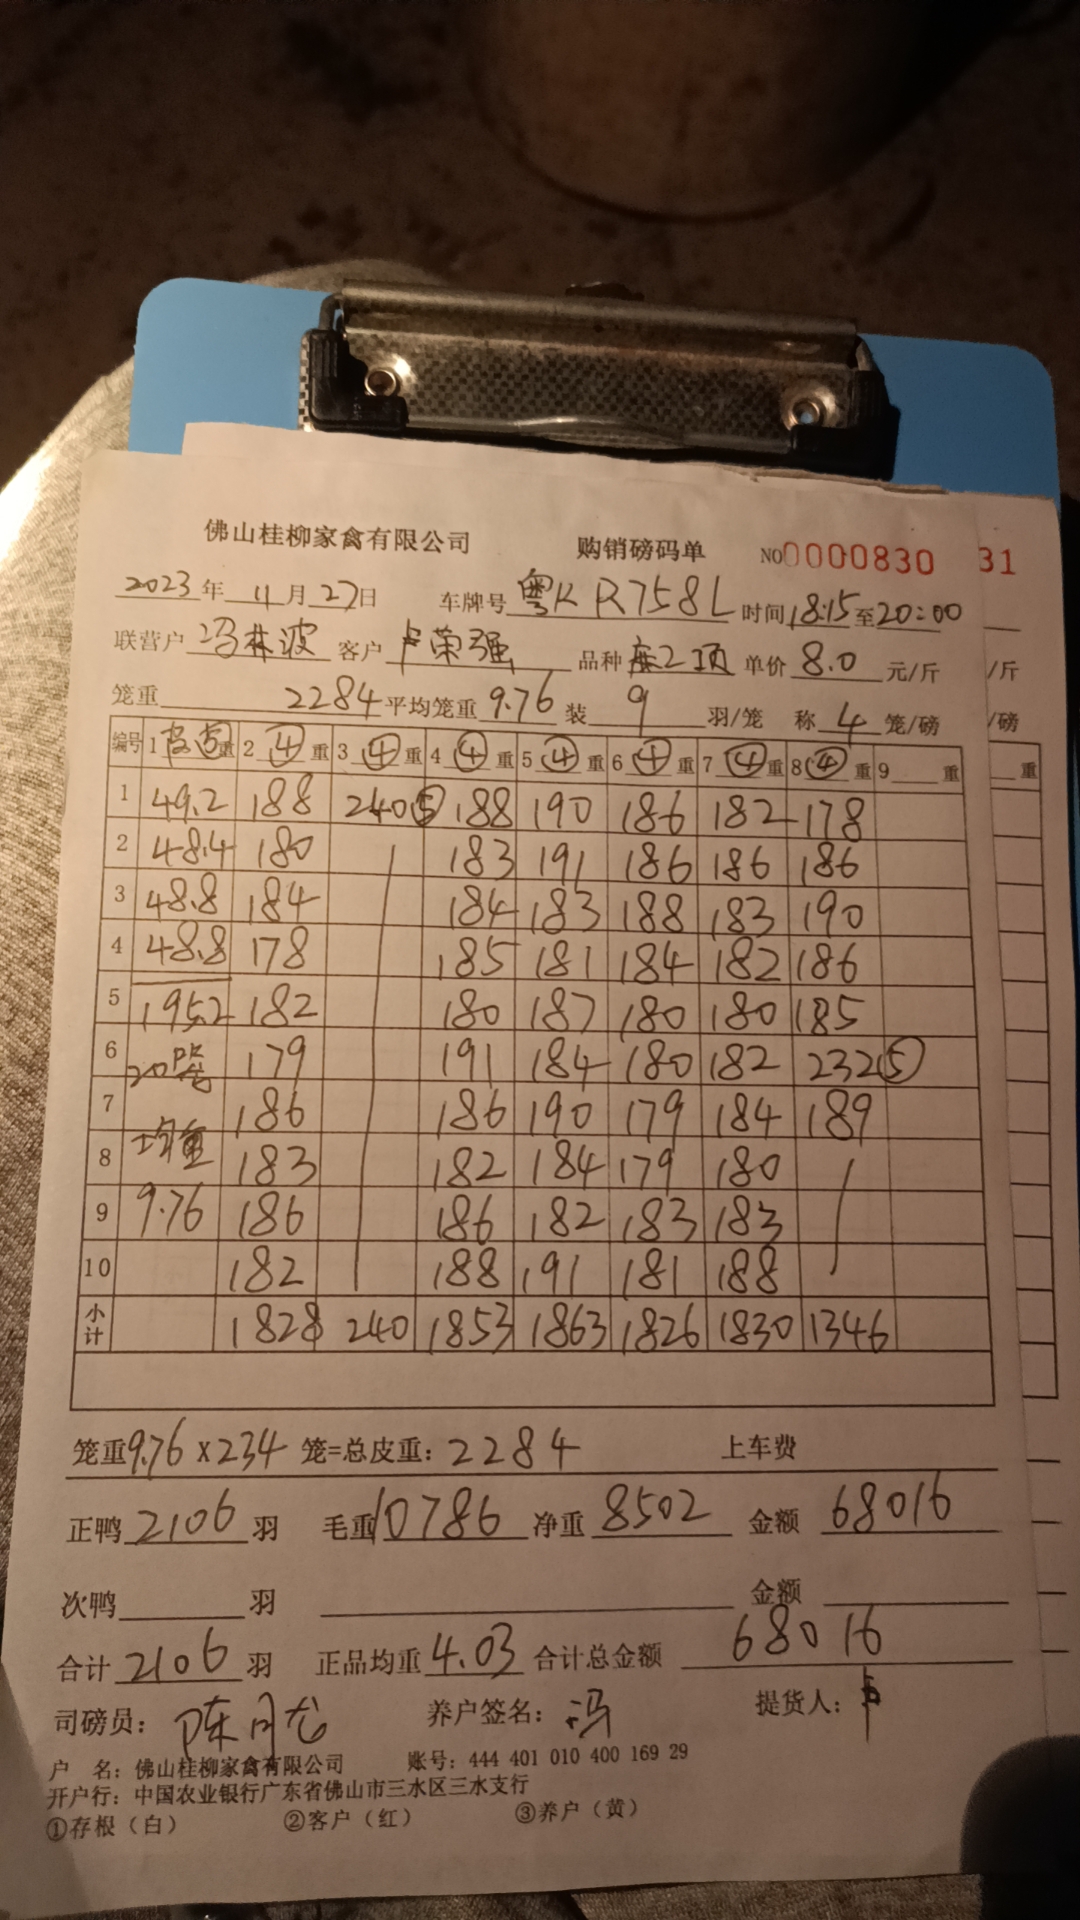 佛山桂柳家禽有限公司 购销磅码单 NO 0000830 31
2023年 11月 27日 车牌号 粤K R758L 时间 18:15 至 20:00
联营户 冯林波 客户 卢荣强 品种 单价 8.0 元/斤 /斤
笼重 2284 平均笼重 9.76 装 9 羽/笼 称 4 笼/磅 /磅
编号 1 重 2 ④ 重 3 ④ 重 4 ④ 重 5 ④ 重 6 ④ 重 7 ④ 重 8 ④ 重 9 重 重
1 49.2 188 240⑤ 188 190 186 182 178
2 48.4 180 183 191 186 186 186
3 48.8 184 184 183 188 183 190
4 48.8 178 185 181 184 182 186
5 195.2 182 180 187 180 180 185
6 20笼 179 191 184 180 182 232⑤
7 186 186 190 179 184 189
8 均重 183 182 184 179 180
9 9.76 186 186 182 183 183
10 182 188 191 181 188
小计 1828 240 1853 1863 1826 1830 1346
笼重 9.76 x 234 笼=总皮重: 2284 上车费
正鸭 2106 羽 毛重 10786 净重 8502 金额 68016
次鸭 羽 金额
合计 2106 羽 正品均重 4.03 合计总金额 68016
司磅员: 陈月龙 养户签名: 冯 提货人: 卢
户 名: 佛山桂柳家禽有限公司 账号: 444 401 010 400 169 29
开户行: 中国农业银行广东省佛山市三水区三水支行
①存根（白） ②客户（红） ③养户（黄）